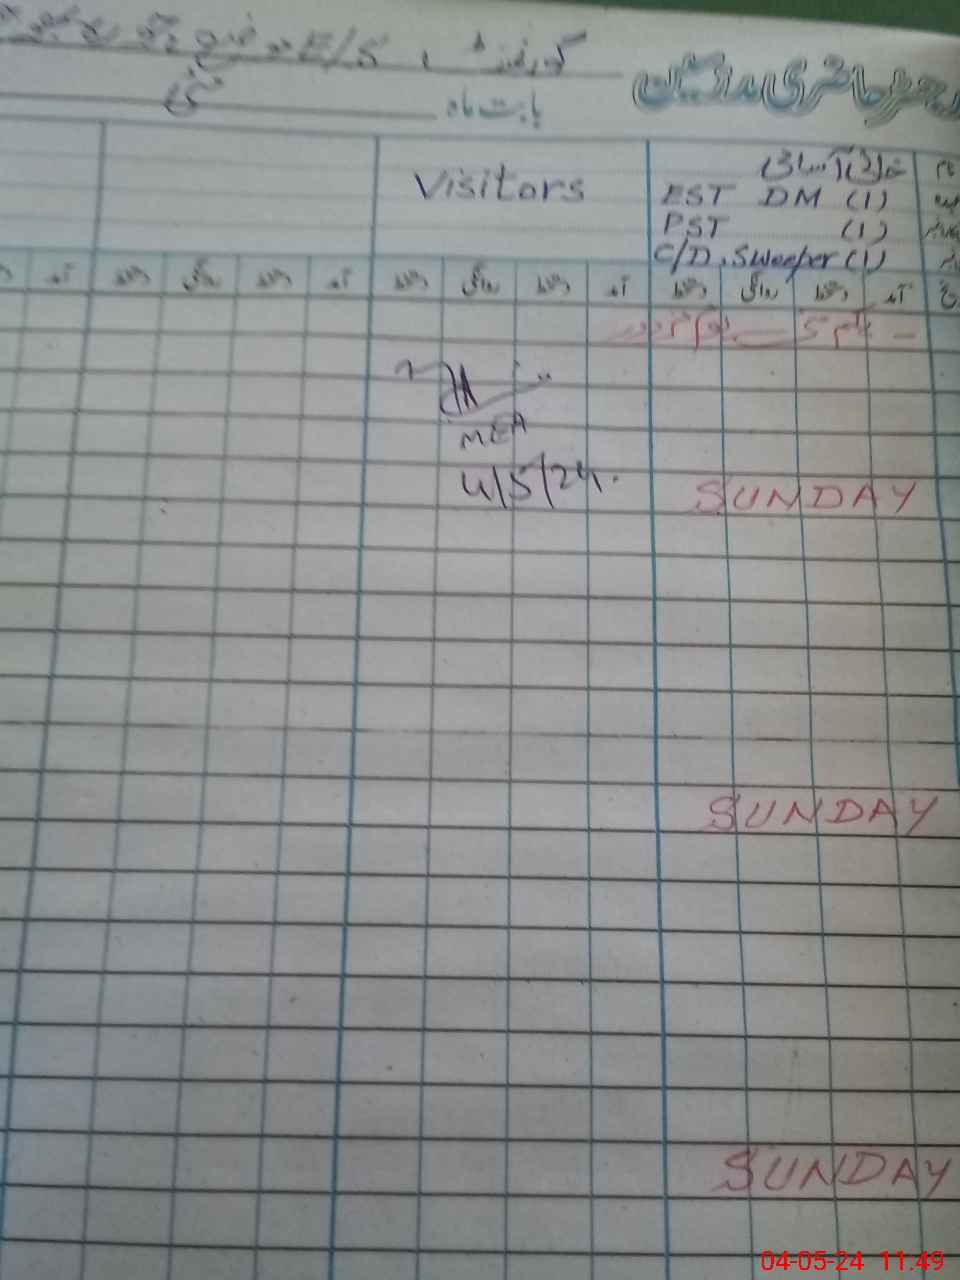 رجسٹر حاضری مدرسین
گورنمنٹ E/S
بابت ماہ مئی
Visitors
خالی آسامی
EST DM (1)
PST (1)
C/D. Sweeper (1)
آمد دستخط روانگی دستخط آمد دستخط روانگی دستخط آمد دستخط روانگی دستخط آمد
MEA
4/5/24.
SUNDAY
SUNDAY
SUNDAY
04-05-24 11:49